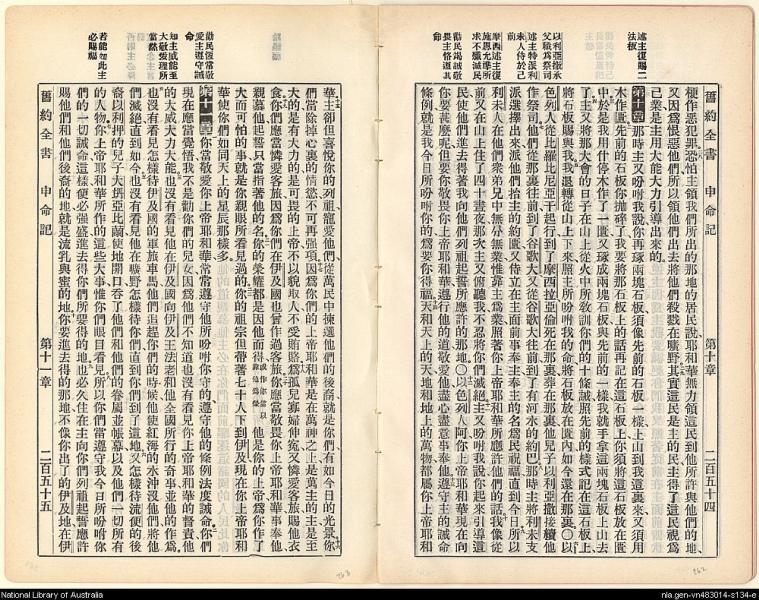 舊約全書 申命記 第十章 二百五十四
述主復賜二法板
極作惡犯罪恐怕主領我們所出的那地的居民說耶和華無力領這民到他所許與他們的地
又因爲恨惡他們所以領他們出去將他們殺戮在曠野其實這民是主的民主得了這民視爲
己業是主用大能大力引導出來的
第十章那時主又吩咐我說你再琢兩塊石板須像先前的石板一樣上山到我這裏來又須用
木作匱先前的石板你摔碎了我要將那石板上的話再記在這石板上你須將這石板放在匱
中於是我用什停木作了一匱又琢成兩塊石板與先前的一樣我就手拿這兩塊石板上山去
了主又將那大會的日子在山上從火中所敎訓你們的十條誡照先前的樣式記在這石板上
將石板賜與我我退轉從山上下來照主所吩咐我的命將石板放在匱內如今還在那裏〇以
色列人從比羅比尼亞干起行到了摩西拉亞倫死在那裏葬在那裏他兒子以利亞撒接續他
作祭司他們從那裏往前到了谷歌大又從谷歌大往前到了有河水的約巴那時主將利未支
派選擇出來派他們抬主的約匱又侍立在主面前事奉主奉主的名爲民祝福直到今日所以
利未人在他們衆弟兄中無分無業惟靠主爲業照著你上帝耶和華所應許他們的話我像從
前又在山上住了四十晝夜那次主又俯聽我不忍將你們滅絕主又吩咐我說你起來引導這
民使他們進去得著我向他們列祖起誓所應許的那地〇以色列人阿你上帝耶和華現在向
你要甚麼呢但要你敬畏你上帝耶和華遵行他的道敬愛他盡心盡意事奉他遵守主的誡命
條例就是我今日所吩咐你的爲要你得福天和天上的天地和地上的萬物都屬你上帝耶和
華主卻但喜悅你的列祖寵愛他們從萬民中揀選他們的後裔就是你們有如今日的光景你
們當除掉心裏的情慾不可再强項因爲你們的上帝耶和華是在萬神之上是萬主的主是至
大的是有大力的是可畏的上帝不以貌取人不受賄賂爲孤兒寡婦伸寃又憐愛客旅賜他衣
食你們應當憐愛客旅因爲你們在伊及國也曾作過客旅你應當敬畏你上帝耶和華事奉他
親慕他起誓只當指著他的名你的榮耀都是因他而得 他是你的上帝爲你作了
大而可怕的事就是你親眼所看見過的你的祖宗但帶著七十人下到伊及現在你上帝耶和
華使你們如同天上的星辰那樣多
第十一章你當敬愛你上帝耶和華常常遵守他所吩咐你守的遵守他的條例法度誡命你們
現在應當覺悟我不是勸你們的兒女因爲他們不知道也沒有看見你上帝耶和華的督責他
的大威大力大能也沒有看見他在伊及國向伊及王法老和他全國所行的奇事並他的作爲
也沒有看見怎樣待伊及國的軍旅車馬他們追趕你們的時候他使紅海的水沖沒他們將他
們滅絕直到如今也沒有看見他在曠野怎樣待你們直到你們到了這地又怎樣待流便的後
裔以利押的兒子大坍亞比蘭使地開口吞了他們和他們的眷屬並帳幕以及他們一切所有
的人物你上帝耶和華所作的這些大事惟你們眼目看見所以你們當遵守我今日所吩咐你
們的一切誡命這樣便必強盛進去得你們所要得的地也必久住在主向你們列祖起誓應許
賜他們和他們後裔的地就是流乳與蜜的地你要進去得的那地不像你出了的伊及地在伊
舊約全書 申命記 第十一章 二百五十五
National Library of Australia
nla.gen-vn483014-s134-e